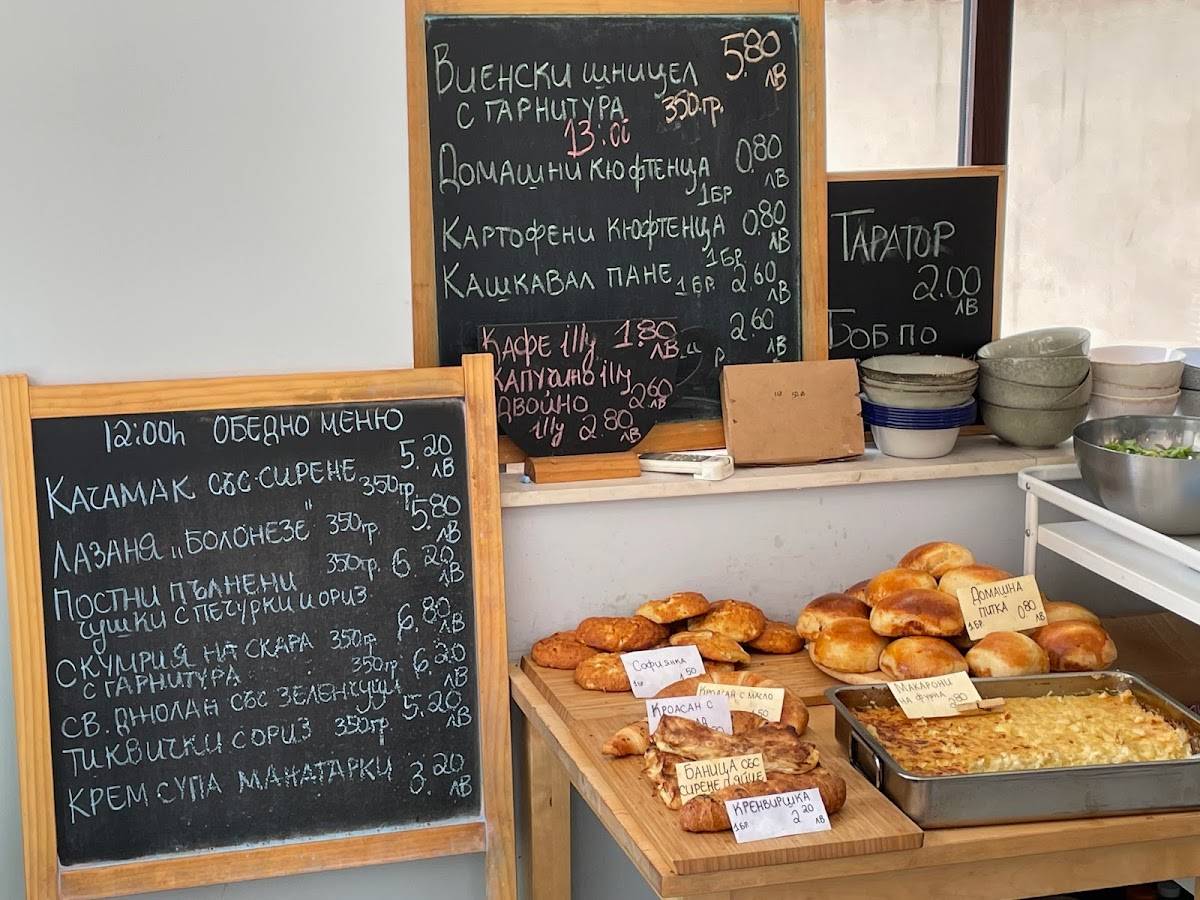 Виенски шницел 5.80 лв
с гарнитура 350гр.
13.00
Домашни кюфтенца 0,80 лв
1бр
Картофени кюфтенца 0,80 лв
1бр.
Кашкавал пане 1бр. 2.60 лв
2.60 лв
Кафе illy 1.80 лв
Капучино illy 2.60 лв
двойно
illy 2.80 лв
Таратор
2.00 лв
Боб по
12:00h Обедно меню
Качамак със сирене 350гр. 5.20 лв
Лазаня „Болонезе" 350гр. 5.80 лв
Постни пълнени 350гр. 6.20 лв
чушки с печурки и ориз
Скумрия на скара 350гр. 6.80 лв
с гарнитура 350гр. 6.20 лв
Св. джолан със зеленчуци
Тиквички с ориз 350гр 5.20 лв
Крем супа манатарки 3.20 лв
Домашна
питка 0.80 лв
Софиянка
1.50
Кроасан с масло
Кроасан с
Макарони
на фурна 2.80
Баница със
сирене и яйце
Кренвиршка
1бр. 2.20 лв